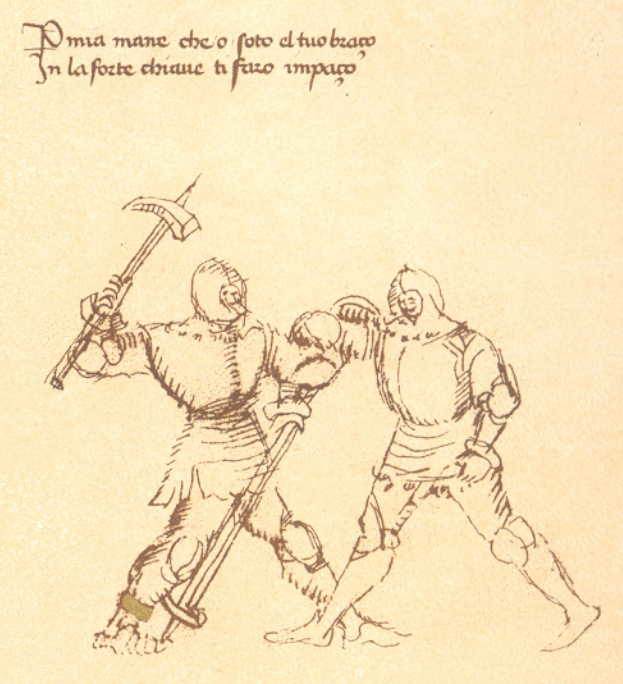 P mia mane che o soto el tuo braço
In la forte chiaue ti faro impaço